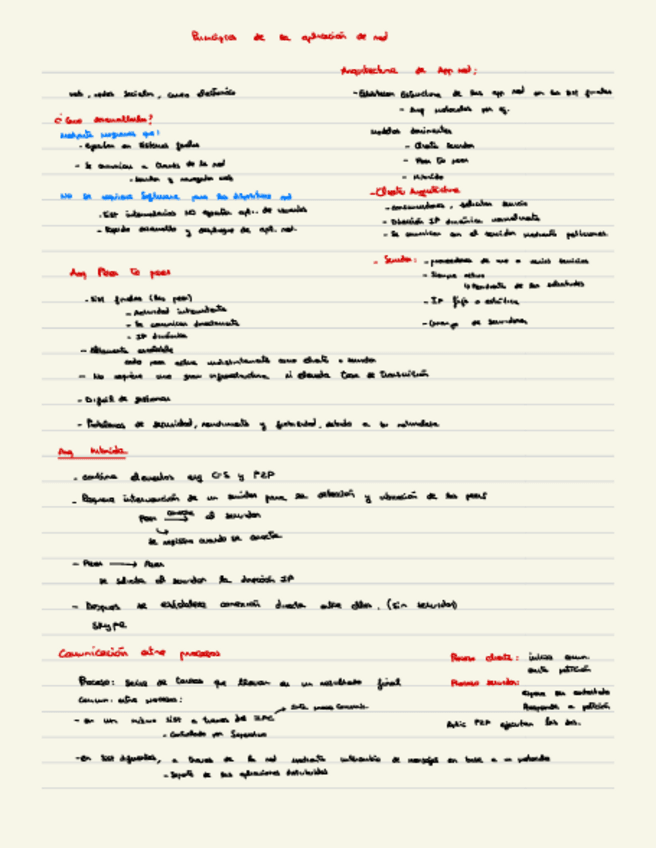 Principios de la aplicación de red
web, redes sociales, correo electrónico
¿Cómo desarrollarla?
Mediante programas que:
- Ejecutan en sistemas finales
- Se comunican a través de la red
- Servidor y navegador web
No se requiere Software para los dispositivos red
- Sist intermediarios NO ejecutan apli. de usuarios
- Rápido desarrollo y despliegue de apli. red.
Arquitectura de App red:
- Establecen Estructura de las app red en los sist finales
- Arq
modelos dominantes
- Cliente servidor
- Peer to peer
- Híbrido
- Cliente Arquitectura
- consumidores, solicitan servicio
- Dirección IP dinámica normalmente
- Se comunican con el servidor mediante peticiones
- Servidor: - proveedores de uno o varios servicios
- Siempre activo
- IP fija o estática
- Granja de servidores
Arq Peer to peer
- Sist finales (los peer)
- Actividad intermitente
- Se comunican directamente
- IP dinámica
- Altamente escalable
cada peer actúa indistintamente como cliente o servidor
- No requiere una gran infraestructura ni elevada tasa de transmisión
- Difícil de gestionar
- Problemas de seguridad, rendimiento y fiabilidad, debido a su naturaleza
Arq híbrida
- contiene elementos arq C-S y P2P
- Requiere intervención de un servidor para la detección y ubicación de los peers
Peer conecta → al servidor
se registra cuando se conecta
- Peer → Peer
se solicita al servidor la dirección IP
- Después se establece conexión directa entre ellos. (Sin servidor)
Skype
Comunicación entre procesos
Proceso: Serie de tareas que llevan en un resultado final
Comun. entre procesos:
- en un mismo sist a través del IPC
- Controlado por Supervisor
- En sist diferentes, a través de la red mediante intercambio de mensajes en base a un protocolo
- Soporte de las aplicaciones distribuidas
Proceso cliente: inicia comun.
envía petición
Proceso servidor:
espera ser contactado
Responde a petición
Aplic P2P ejecutan los dos.